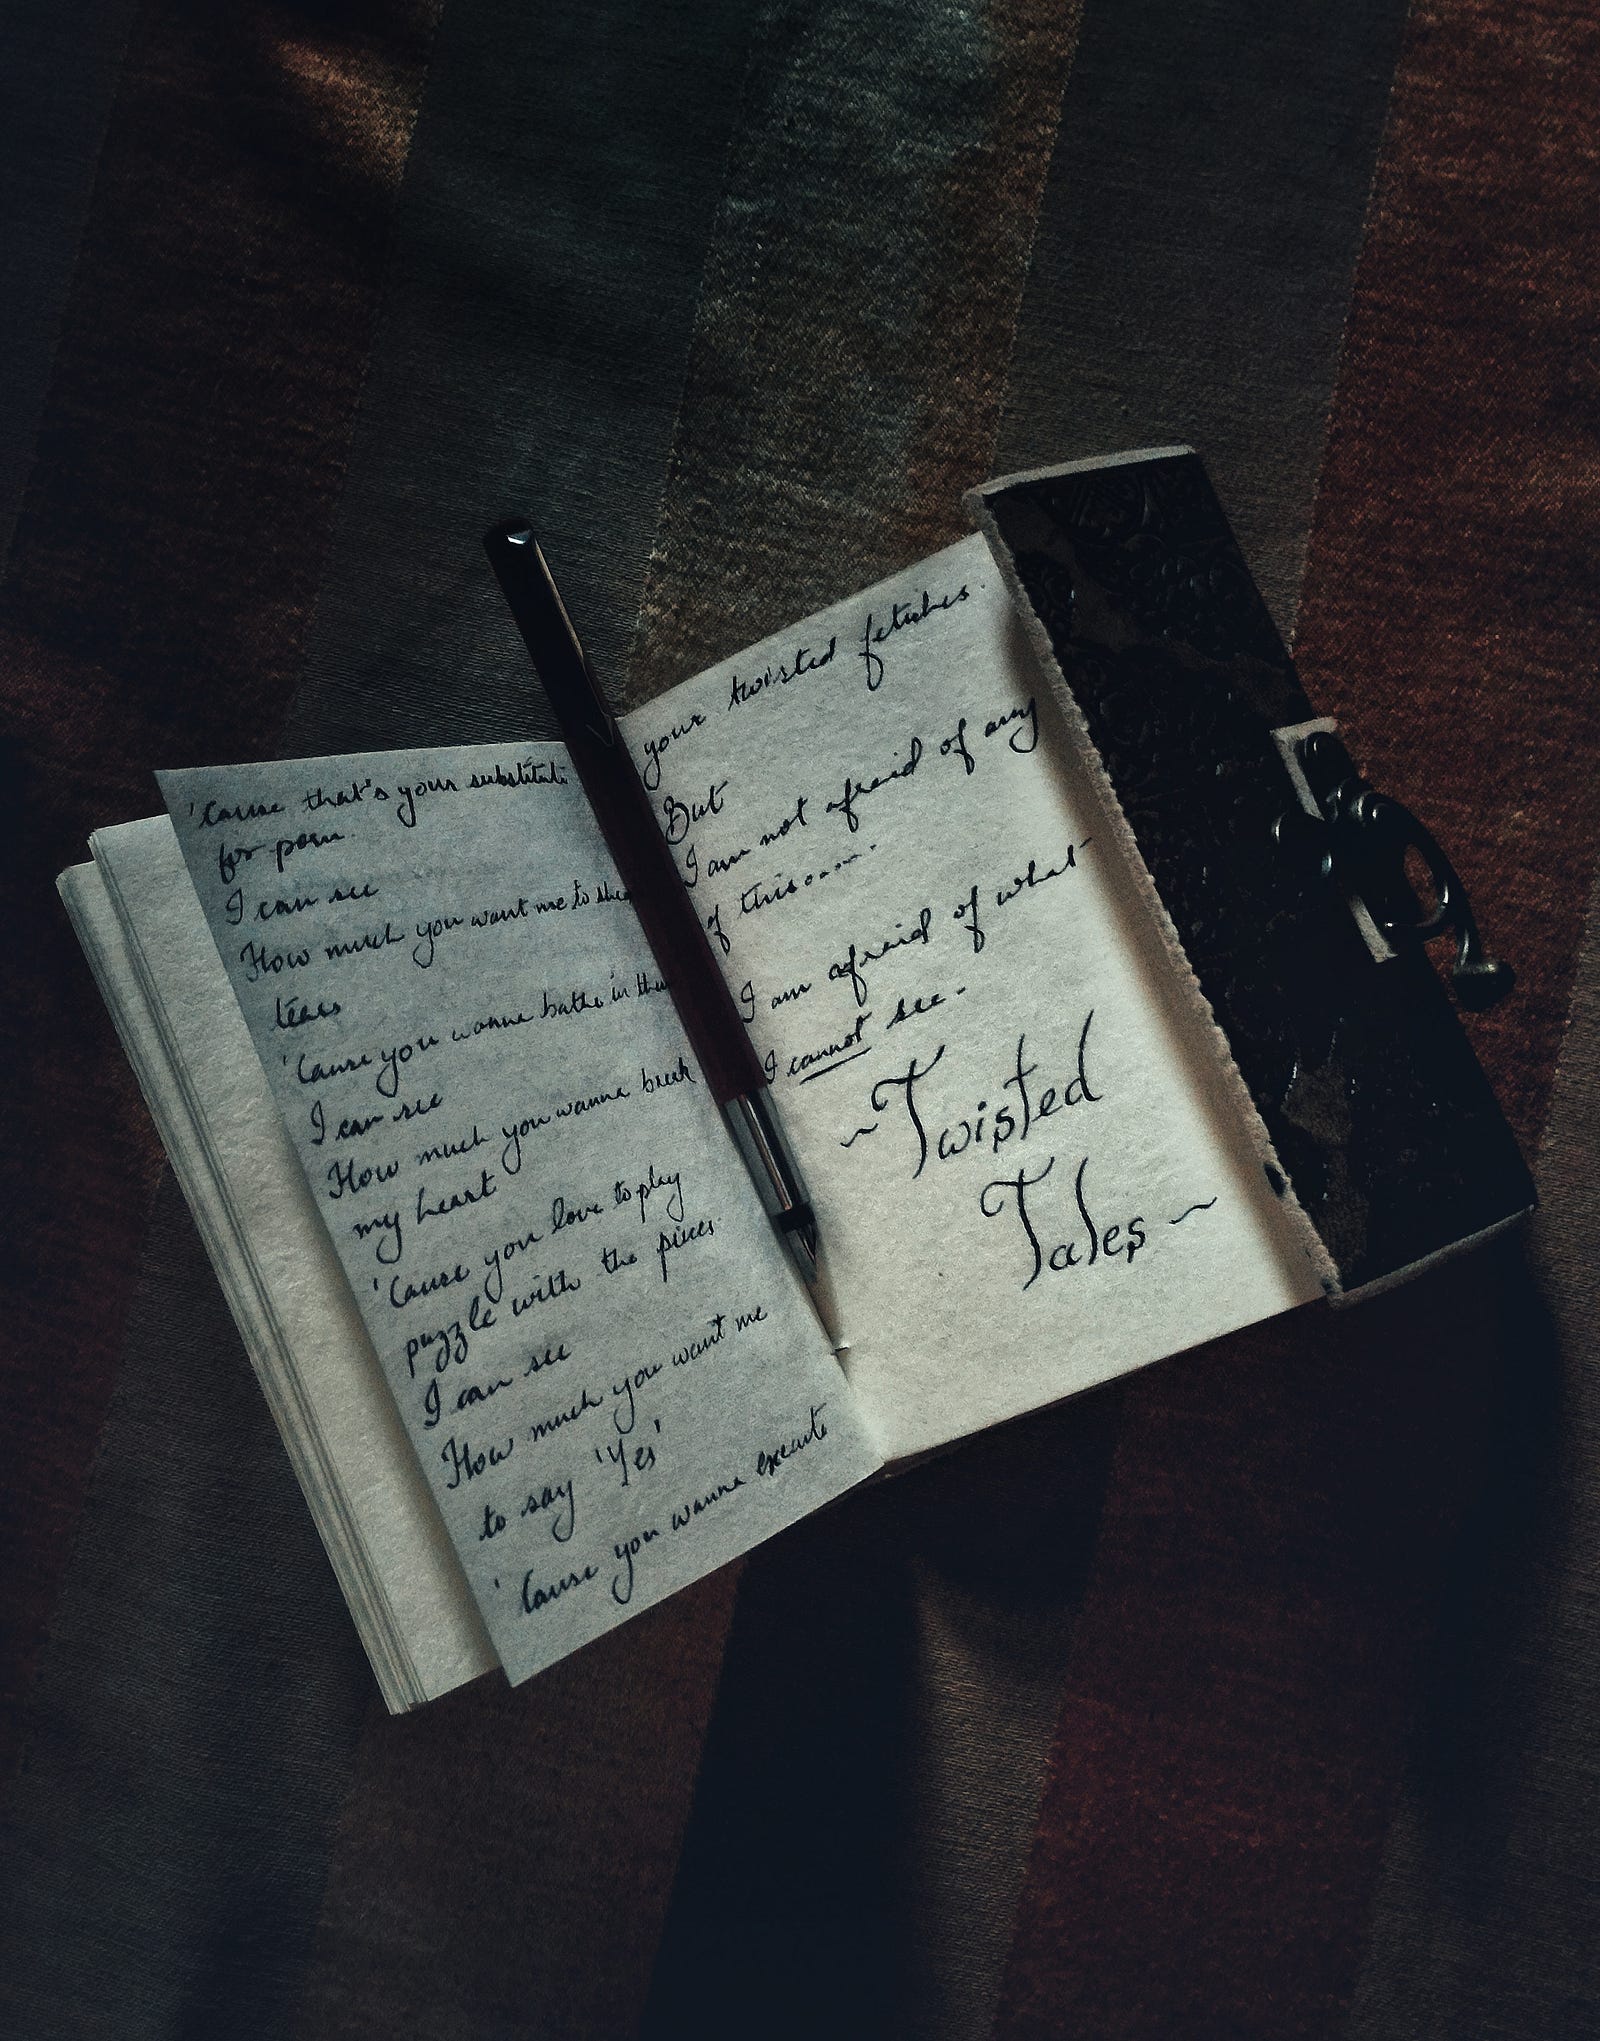 'Cause that's your substitute
for porn.
I can see
How much you want me to
tears
'Cause you wanna bathe in
I can see
How much you wanna break
my heart
'Cause you love to play
puzzle with the pieces.
I can see
How much you want me
to say 'Yes'
'Cause you wanna execute
your twisted fetishes.
But
I am not afraid of any
of this.....
I am afraid of what
I cannot see.
~Twisted
Tales~